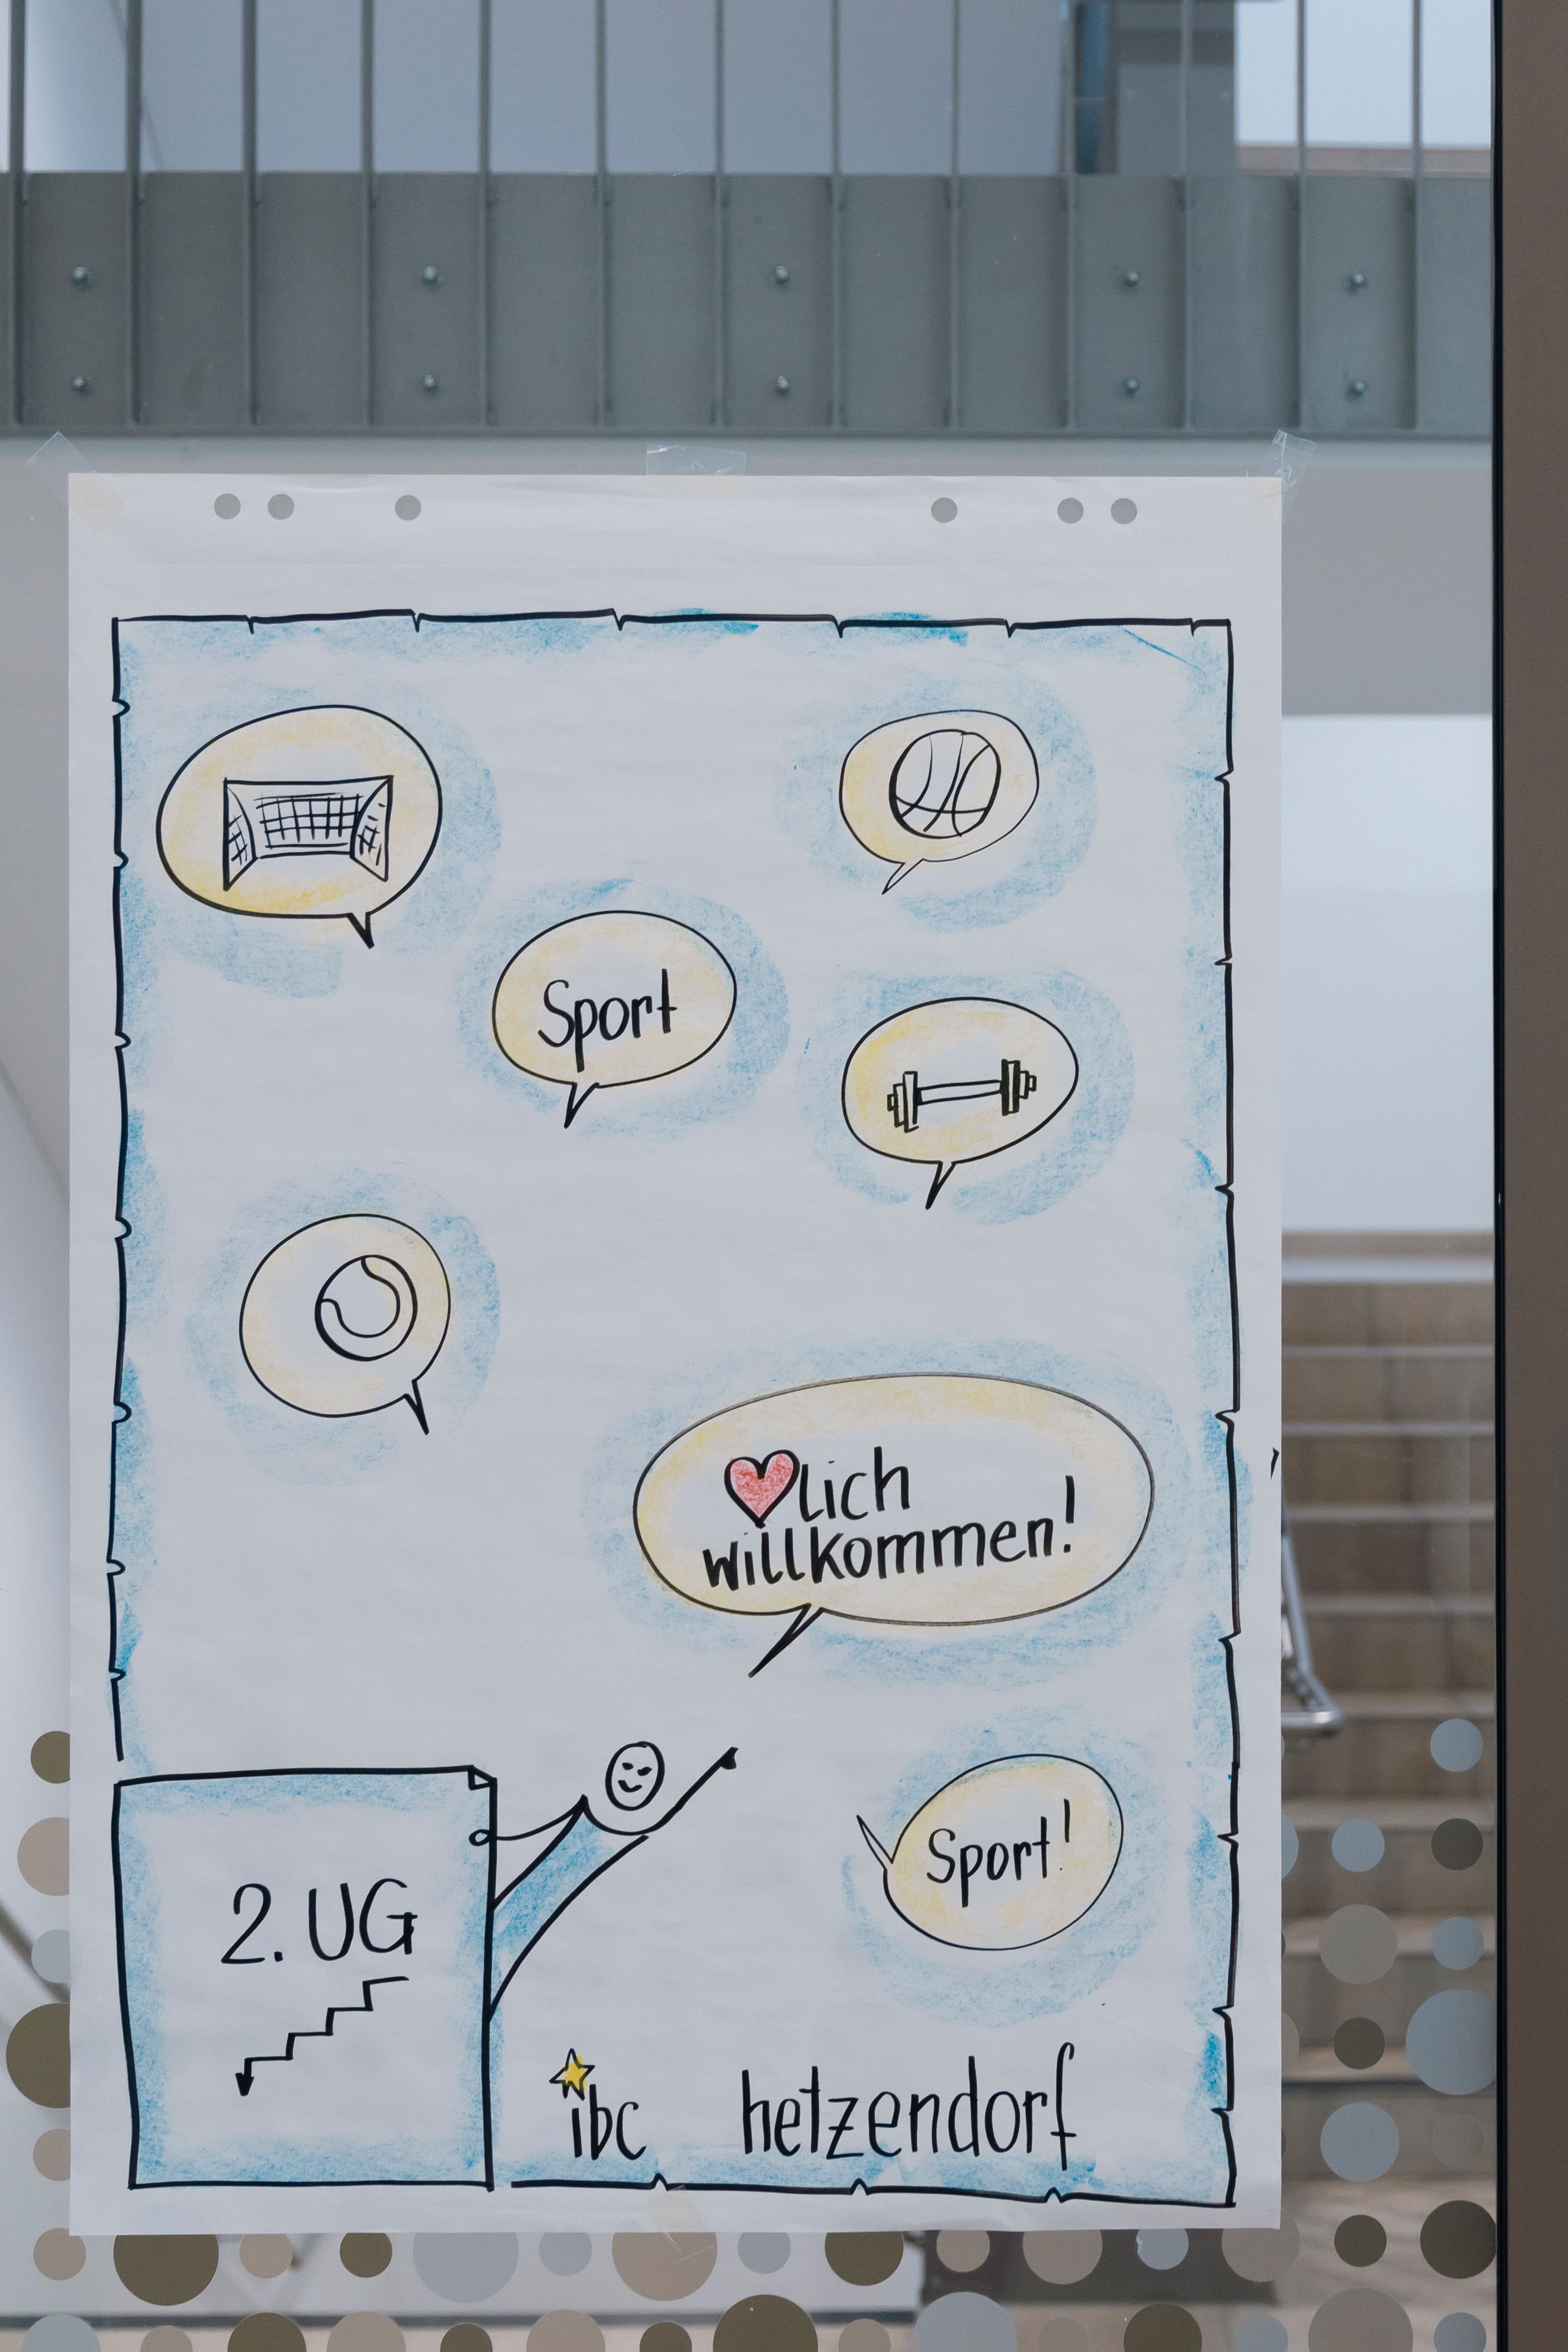 Sport
❤lich
willkommen!
Sport!
2. UG
ibc hetzendorf